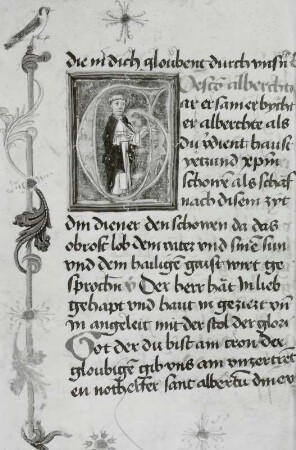 die in dich gloubent durch vnsn
escō alberchtū
ar er samer bycht
er alberchte als
du v̓dient haust
yetzund xp̄m
schowē als schaf
nach disem zyt
din diener den schowen da das
obrost lob dem vater vnd sinē sun
vnd dem hailigen gaist wirt ge
sprochn̄ v̓ Der herr hāt in lieb
gehapt vnd haut in geziert vn̄
in angeleit mit der stol der glori
Got der du bist am tron der
gloubigen gib vns am vnzertren
en nothelfer sant albertū dinen